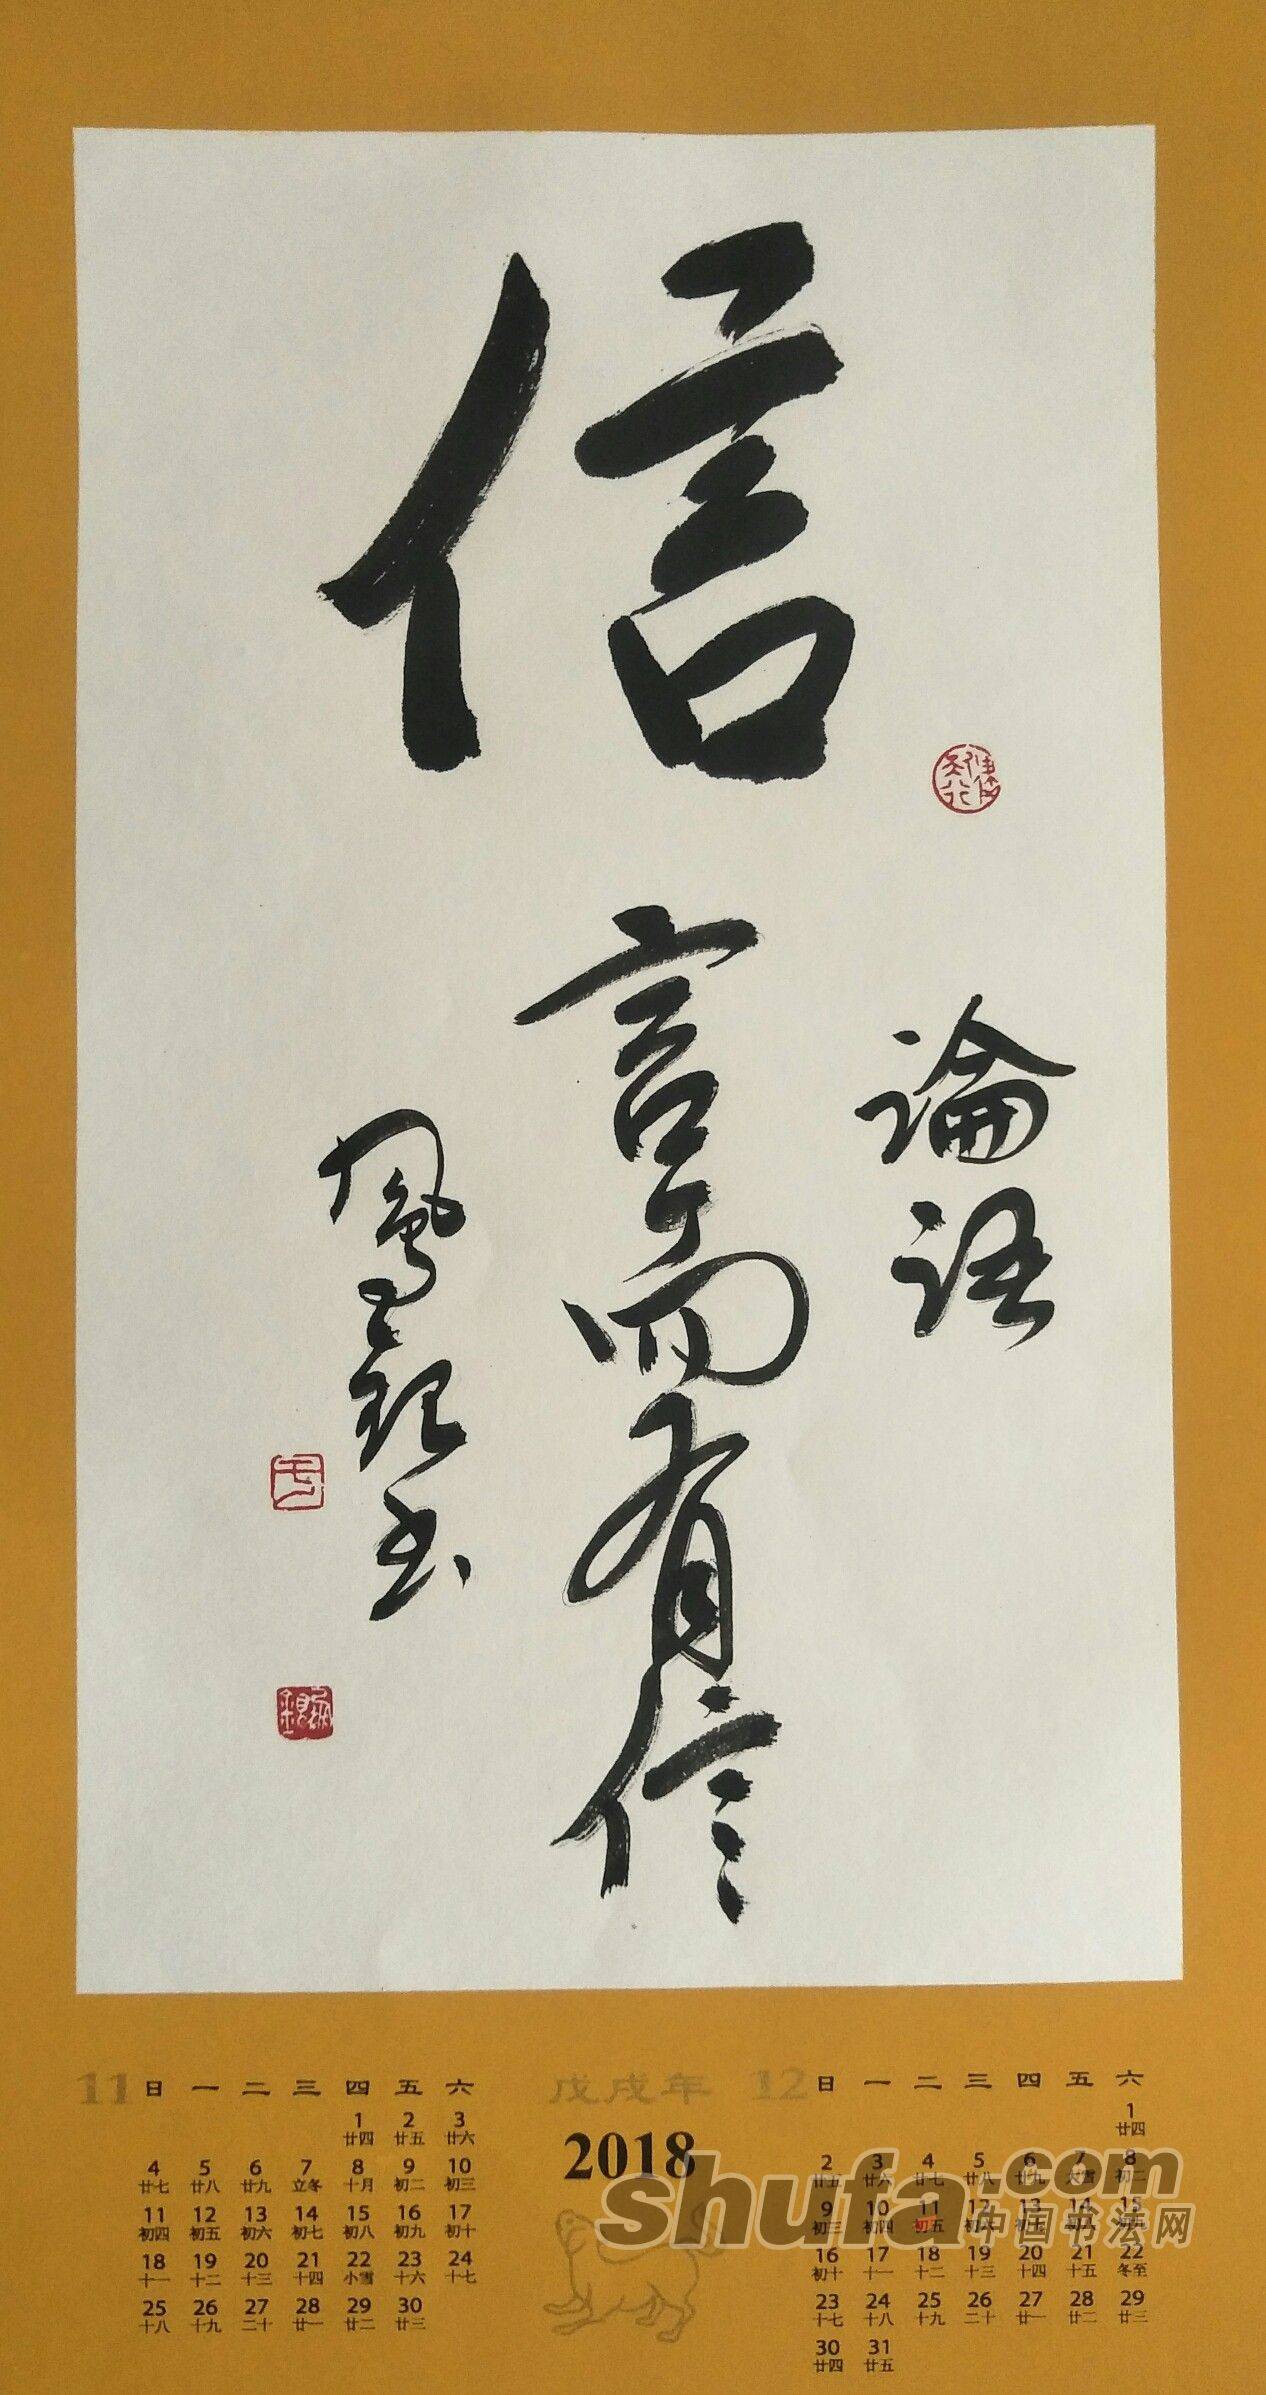 信
論語
言而有信
11 日 一 二 三 四 五 六
1 2 3
廿四 廿五 廿六
4 5 6 7 8 9 10
廿七 廿八 廿九 立冬 十月 初二 初三
11 12 13 14 15 16 17
初四 初五 初六 初七 初八 初九 初十
18 19 20 21 22 23 24
十一 十二 十三 十四 小雪 十六 十七
25 26 27 28 29 30
十八 十九 二十 廿一 廿二 廿三
戊戌年
2018
12 日 一 二 三 四 五 六
1
廿四
2 3 4 5 6 7 8
廿五 廿六 廿七 廿八 廿九 大雪 初二
9 10 11 12 13 14 15
初三 初四 初五 初六
16 17 18 19 20 21 22
初十 十一 十二 十三 十四 十五 冬至
23 24 25 26 27 28 29
十七 十八 十九 二十 廿一 廿二 廿三
30 31
廿四 廿五
shufa.com
中国书法网